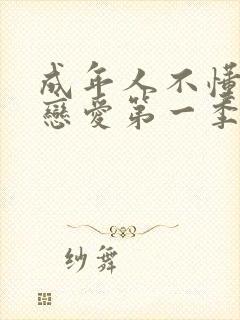 成年人不懂
戀愛第一季
纱舞